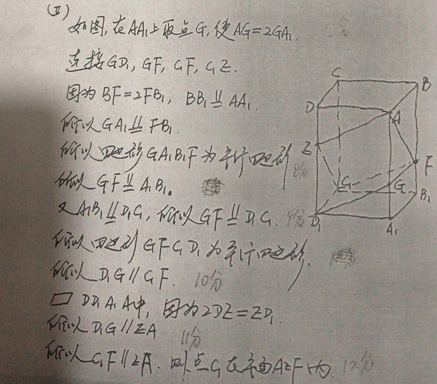 (Ⅱ)
如图,在AA₁上取点G,使AG=2GA₁.
连接GD₁,GF,C₁F,C₁Z.
因为BF=2FB₁,BB₁⫽AA₁.
所以GA₁⫽FB₁.
所以四边形GA₁B₁F为平行四边形
所以GF⫽A₁B₁.
又A₁B₁⫽D₁C₁,所以GF⫽D₁C₁.
所以四边形GFC₁D₁为平行四边形.
所以D₁G//C₁F. 10分
□DD₁A₁A中,因为2DZ=ZD₁.
所以D₁G//ZA 11分
所以C₁F//ZA.即点C₁在平面AZF内. 12分
C
B
D
A
Z
F
C₁
G
B₁
D₁
A₁